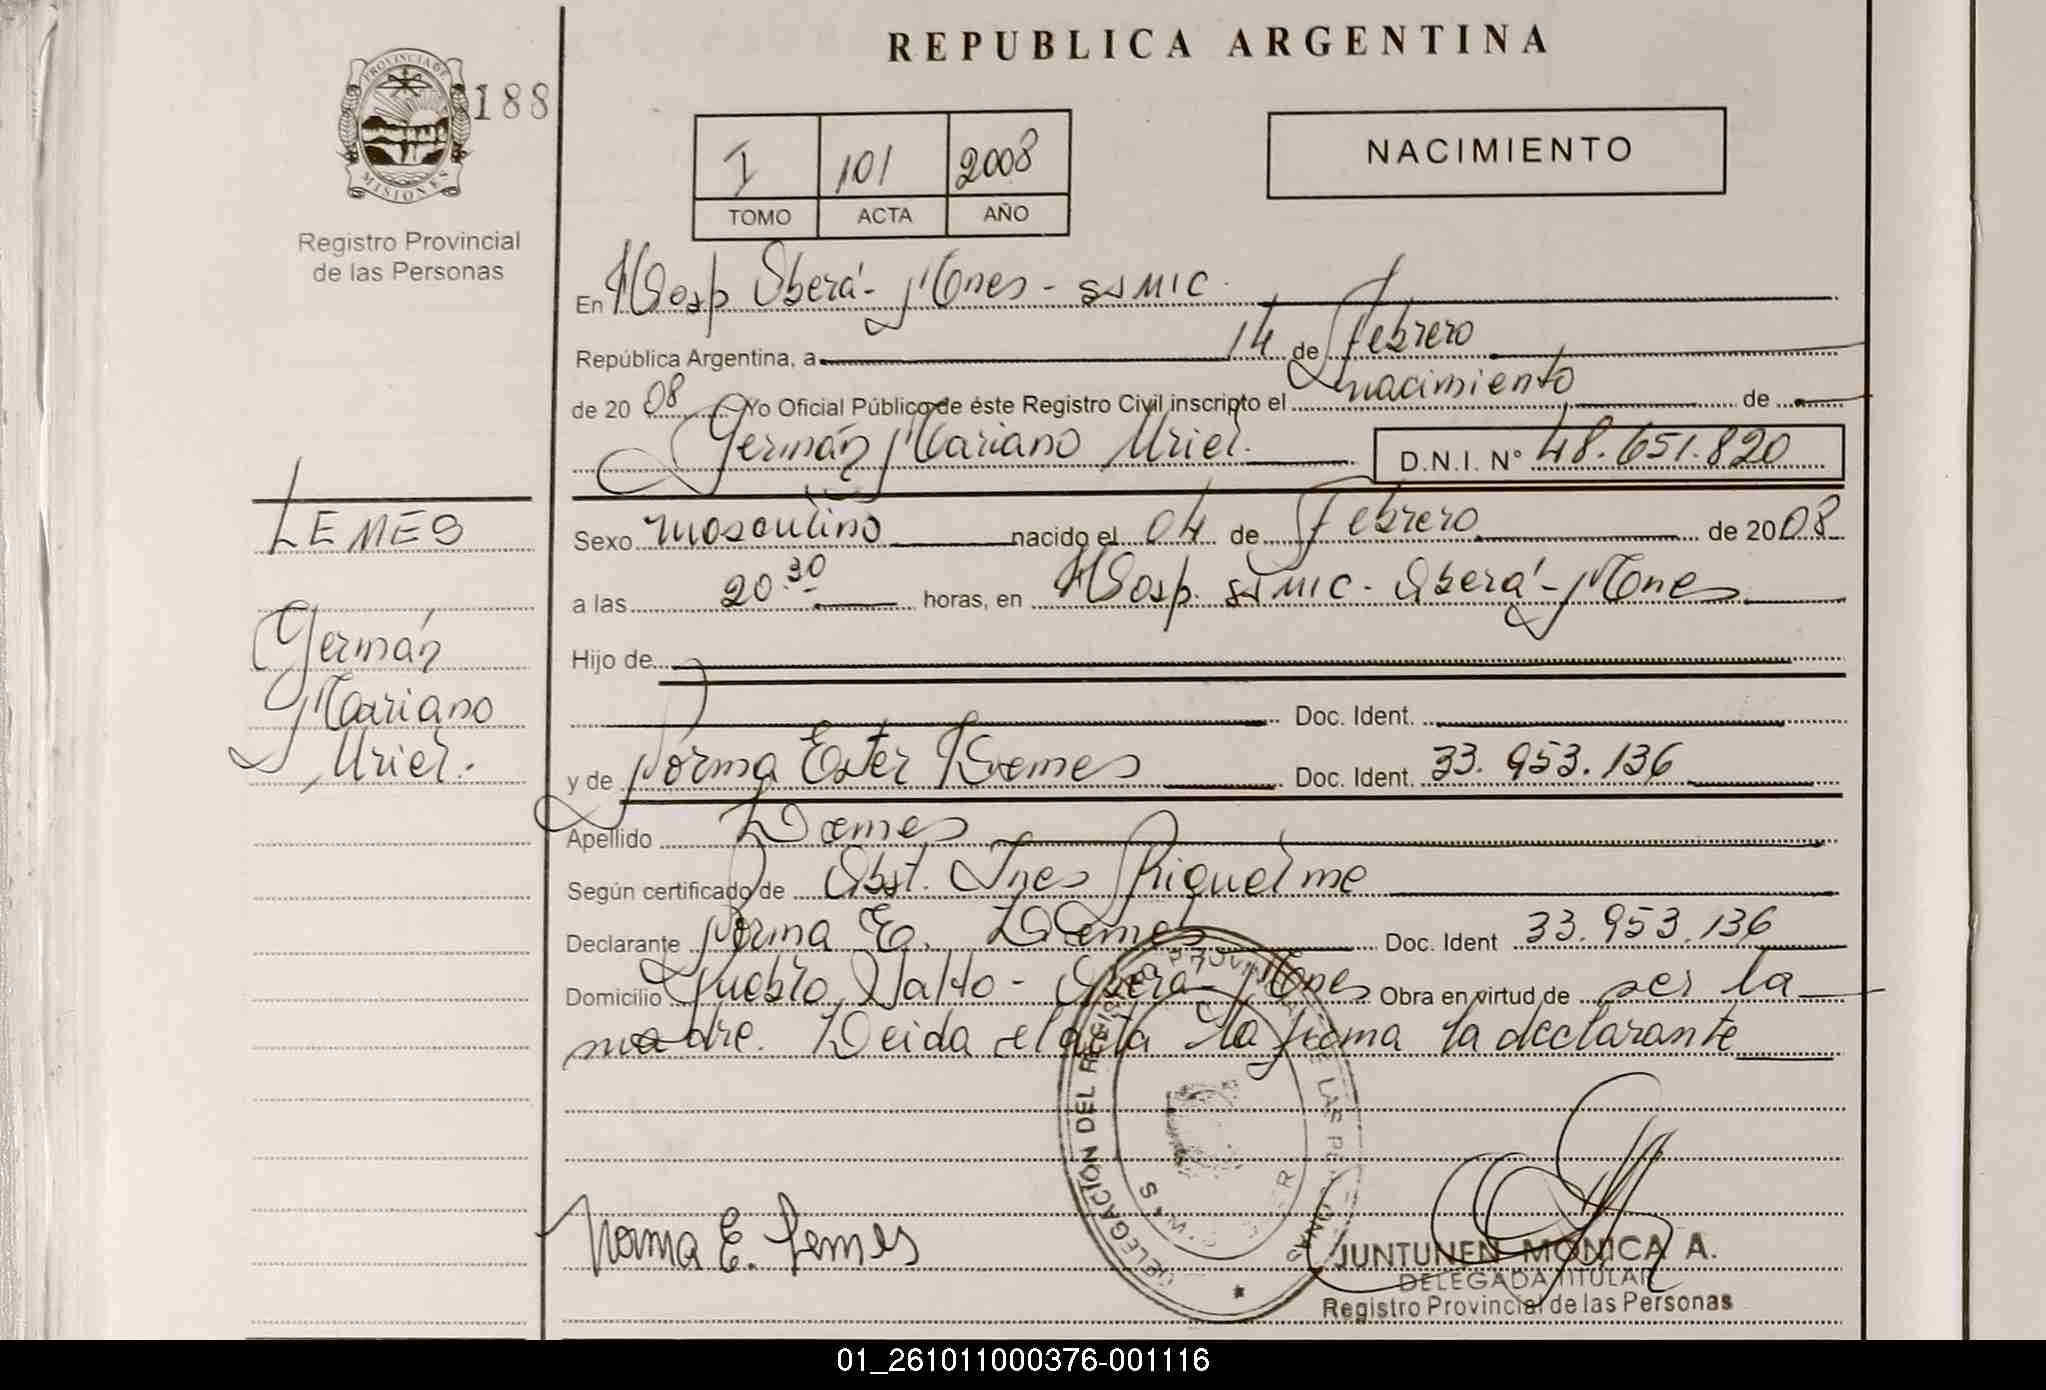 REPUBLICA ARGENTINA
PROVINCIA DE MISIONES
188
Registro Provincial
de las Personas
I 101 2008
TOMO ACTA AÑO
NACIMIENTO
En Hosp Oberá - Mnes - SAMIC.
República Argentina, a 14 de Febrero
de 20 08 Yo Oficial Público de éste Registro Civil inscripto el nacimiento de
Germán Mariano Uriel. D.N.I. N° 48.651.820
LEMES
Germán
Mariano
Uriel.
Sexo masculino nacido el 04 de Febrero de 2008
a las 20 30 horas, en Hosp. SAMIC - Oberá - Mnes
Hijo de
Doc. Ident.
y de Norma Ester Lemes Doc. Ident. 33.953.136
Apellido Lemes
Según certificado de Obst. Ines Riquelme
Declarante Norma E. Lemes Doc. Ident 33.953.136
Domicilio Pueblo Salto - Oberá - Mnes Obra en virtud de ser la
madre. Leida el acta la firma la declarante
DELEGACION DEL REGISTRO PROVINCIAL DE LAS PERSONAS
Norma E. Lemes
JUNTUNEN MONICA A.
DELEGADA TITULAR
Registro Provincial de las Personas
01_261011000376-001116